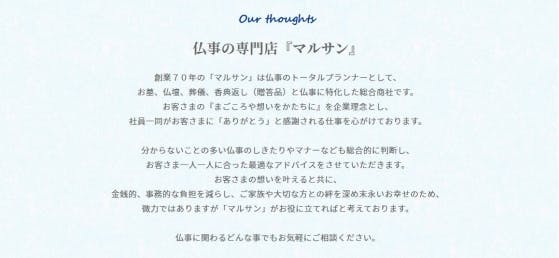 Our thoughts
仏事の専門店『マルサン』
創業７０年の「マルサン」は仏事のトータルプランナーとして、
お墓、仏壇、葬儀、香典返し（贈答品）と仏事に特化した総合商社です。
お客さまの『まごころや想いをかたちに』を企業理念とし、
社員一同がお客さまに「ありがとう」と感謝される仕事を心がけております。
分からないことの多い仏事のしきたりやマナーなども総合的に判断し、
お客さま一人一人に合った最適なアドバイスをさせていただきます。
お客さまの想いを叶えると共に、
金銭的、事務的な負担を減らし、ご家族や大切な方との絆を深め末永いお幸せのため、
微力ではありますが「マルサン」がお役に立てればと考えております。
仏事に関わるどんな事でもお気軽にご相談ください。